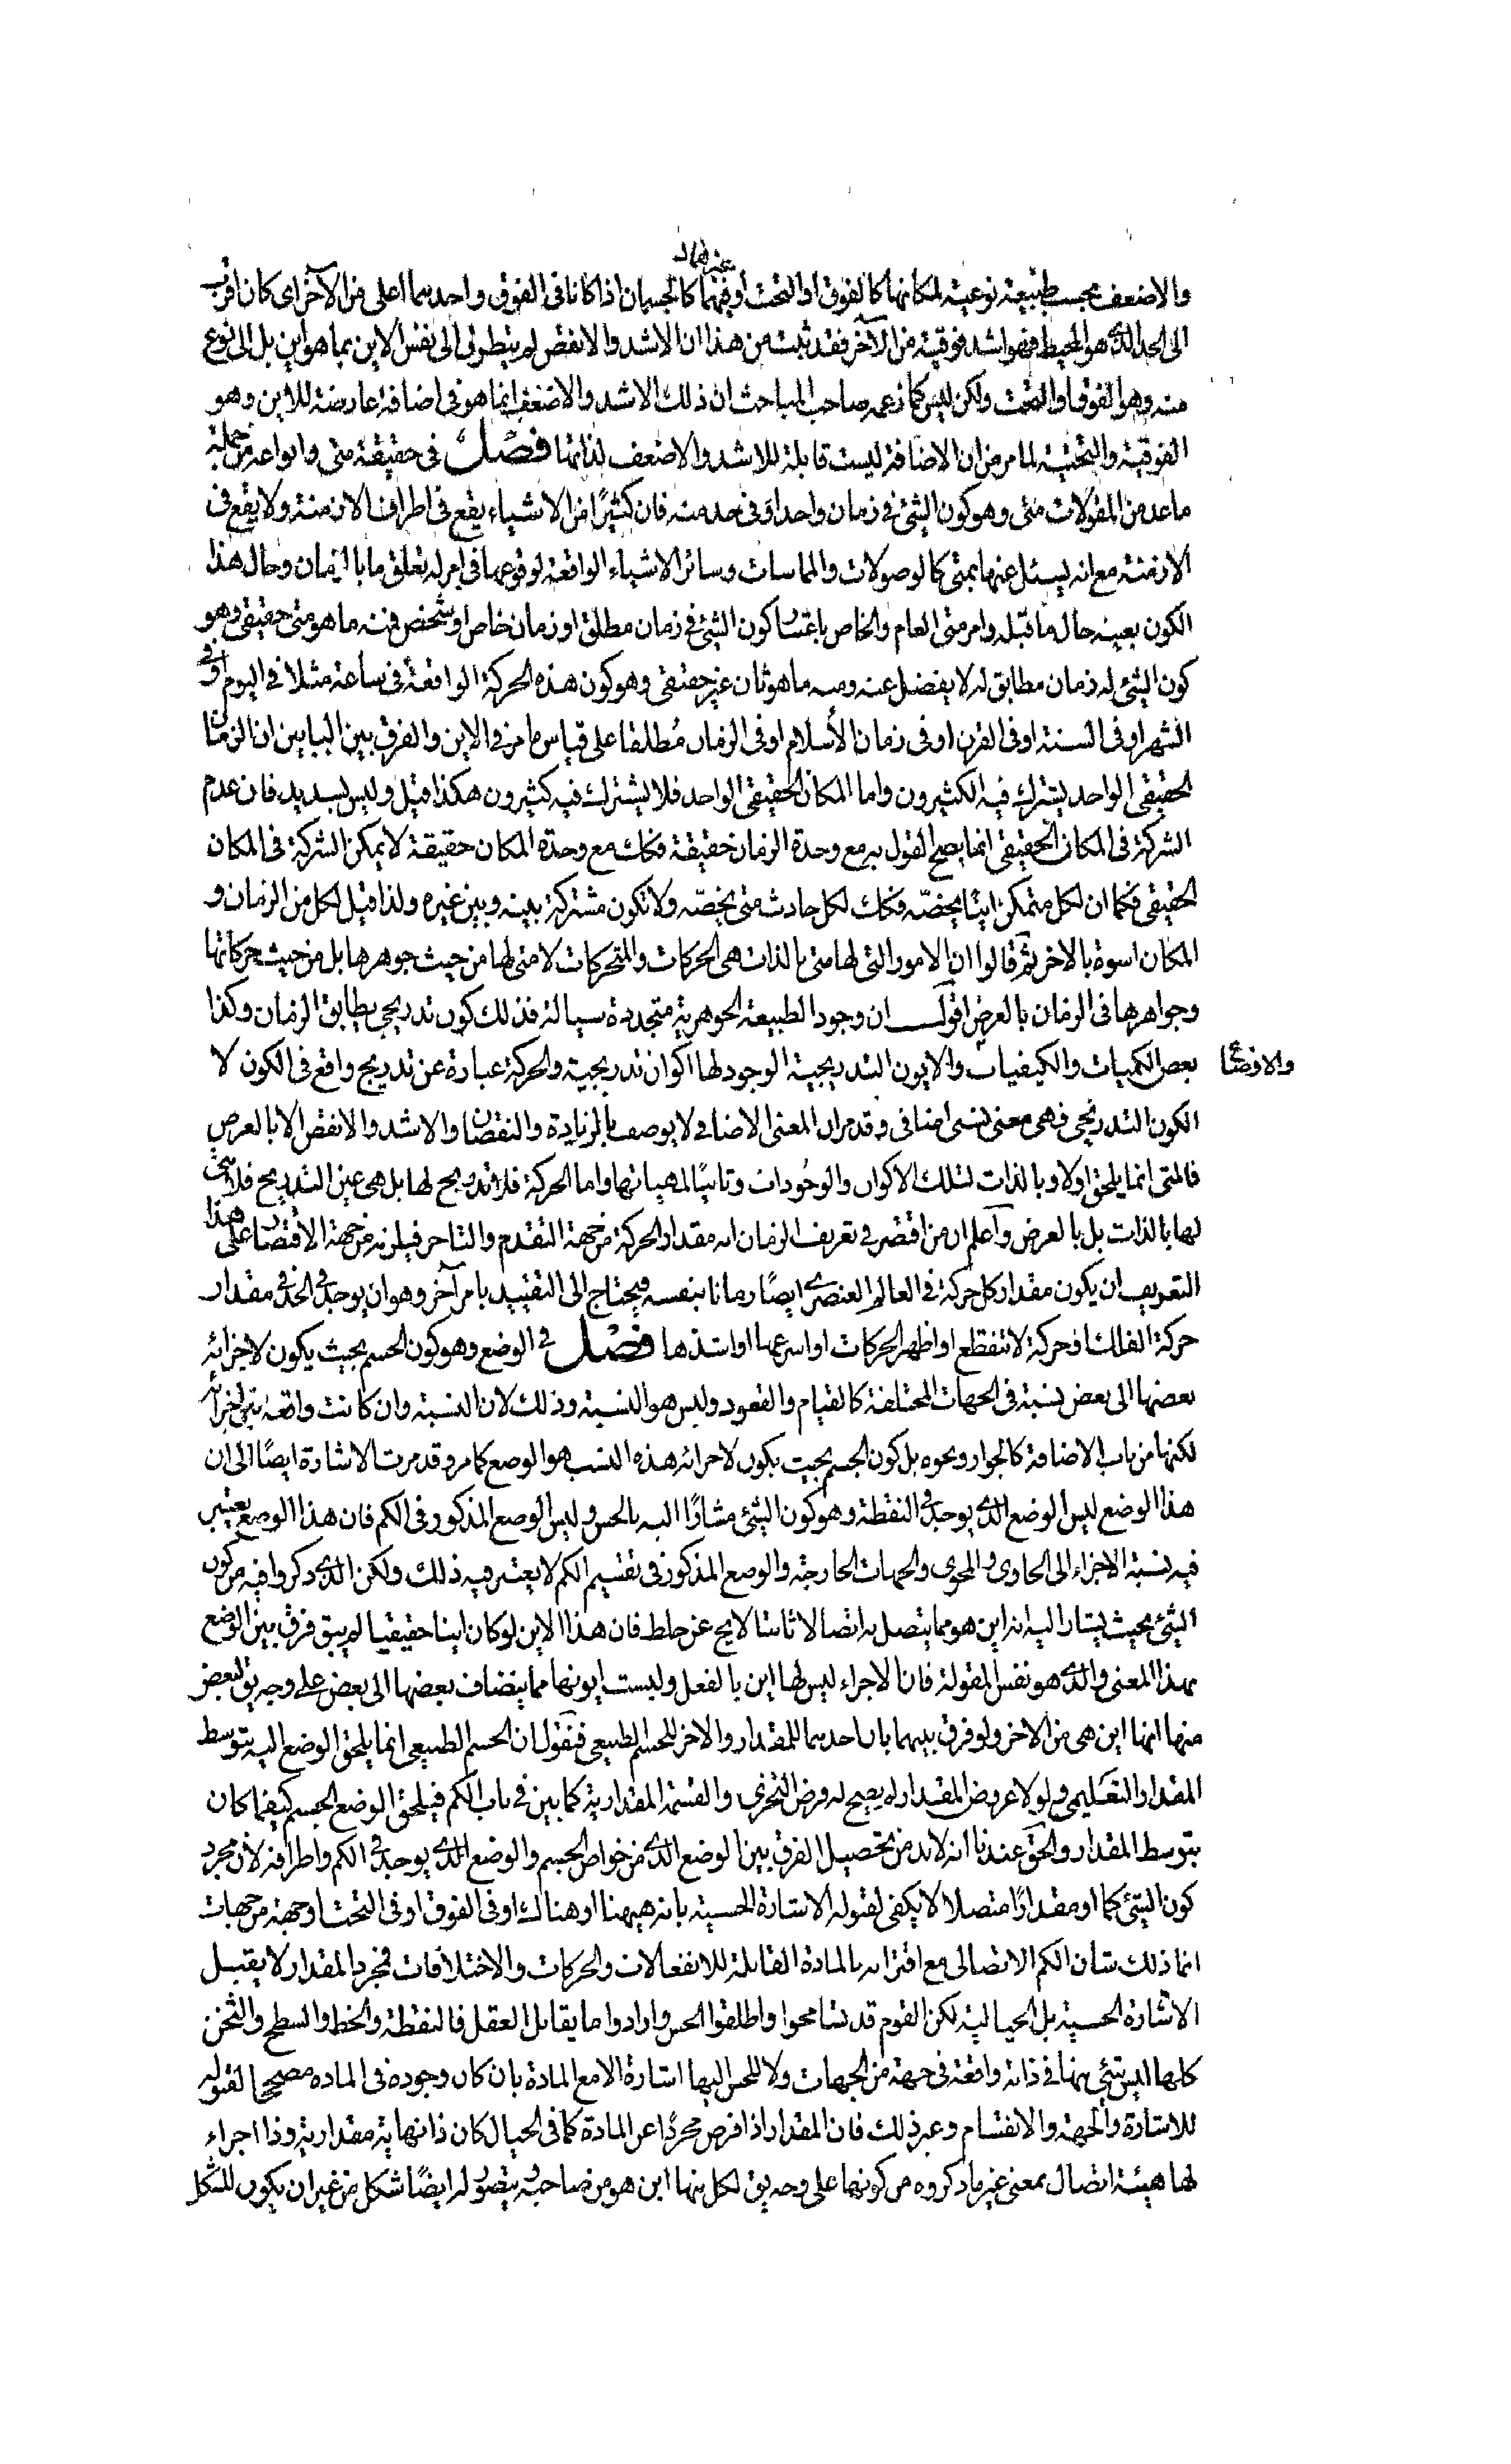 والاضعف بحسب طبيعة نوعية لمكانها كالفوق او التحت او غيرهما كالجسمان اذا كانا فى الفوق واحدهما اعلى من الآخر اى كان اقرب
الى الحد الذى هو المحيط فهو اشد فوقية من الآخر فقد ثبت من هذا ان الاشد والانقص لم يتطرق الى نفس الاين بما هو اين بل الى نوع
منه وهو الفوق او التحت ولكن ليس كما زعمه صاحب المباحث ان ذلك الاشد والاضعف انما هو فى اضافة عارضة للاين وهو
الفوقية والتحتية لما مر من ان الاضافة ليست قابلة للاشد والاضعف لذاتها فصل فى حقيقة متى وانواعه من جملة
ما عد من المقولات متى وهو كون الشئ فى زمان واحد او فى حد منه فان كثيرًا من الاشياء يقع فى اطراف الازمنة ولا يقع فى
الازمنة مع انه يسئل عنها بمتى كالوصولات والمماسات وسائر الاشياء الواقعة لوقوعها فى امر له تعلق ما بالزمان وحال هذا
الكون بعينه حال ما قبله وامر متى العام والخاص باعتبار كون الشئ فى زمان مطلق او زمان خاص او شخص فمنه ما هو متى حقيقى وهو
كون الشئ له زمان مطابق له لا يفضل عنه ومنه ما هو ثان غير حقيقى وهو كون هذه الحركة الواقعة فى ساعة مثلا فى اليوم او فى
الشهر او فى السنة او فى القرن او فى زمان الأسلام او فى الزمان مُطلقا على قياس ما مر فى الاين والفرق بين البابين ان الزمان
الحقيقى الواحد يشترك فيه الكثيرون واما المكان الحقيقى الواحد فلا يشترك فيه كثيرون هكذا قيل وليس بسديد فان عدم
الشركة فى المكان الحقيقى انما يصح القول به مع وحدة الزمان حقيقة فكك مع وحدة المكان حقيقة لا يمكن الشركة فى المكان
الحقيقى فكما ان لكل متمكن اينا يخصّه فكك لكل حادث متى يخصّه ولا تكون مشتركة بينه وبين غيره ولذا قيل لكل من الزمان و
المكان اسوة بالاخر ثم قالوا ان الامور التى لها متى بالذات هى الحركات والمتحركات لا متى لها من حيث جوهرها بل من حيث حركاتها
وجواهرها فى الزمان بالعرض اقول ان وجود الطبيعة الجوهرية متجددة سيالة فذلك كون تدريجى يطابق الزمان وكذا
بعض الكميات والكيفيات والايون التدريجية الوجود لها اكوان تدريجية والحركة عبارة عن تدريج واقع فى الكون لا
والاوضاع
الكون التدريجى فهى معنى نسبى اضافى وقد مر ان المعنى الاضافى لا يوصف بالزيادة والنقصان والاشد والانقص الا بالعرض
فالمتى انما يلحق اولا وبالذات لتلك الاكوان والوجُودات وثانيًا لمهياتها واما الحركة فلا تدريج لها بل هى عين التدريج فلا متى
لها بالذات بل بالعرض وآعلم ان من اقتصر فى تعريف الزمان انه مقدار الحركة من جهة التقدم والتاخر فيلزمه من جهة الاقتصار على هذا
التعريف ان يكون مقدار كل حركة فى العالم العنصرى ايضًا زمانا بنفسه فيحتاج الى التقييد بامر آخر وهو ان يوجد فى الحد فى مقدار
حركة الفلك او حركة لا تنقطع او اظهر الحركات او اسرعها او اشدها فصل فى الوضع وهو كون الجسم بحيث يكون لاجزائه
بعضها الى بعض نسبة فى الجهات المختلفة كالقيام والقعود وليس هو النسبة وذلك لان النسبة وان كانت واقعة بين اجزائه
لكنها من باب الاضافة كالجوار ونحوه بل كون الجسم بحيث يكون لاجزائه هذه النسب هو الوضع كما مر وقد مرت الاشارة ايضًا الى ان
هذا الوضع ليس الوضع الذى يوجد فى النقطة وهو كون الشئ مشارًا اليه بالحس وليس الوضع المذكور فى الكم فان هذا الوضع يعتبر
فيه نسبة الاجزاء الى الحاوى والمحوى والجهات الخارجة والوضع المذكور فى تقسيم الكم لا يعتبر فيه ذلك ولكن الذى ذكروا فيه من كون
الشئ بحيث يشار اليه انه اين هو مما يتصل به اتصالا ثابتا لا يخ عن خلط فان هذا الاين لو كان اينا حقيقيا لم يبق فرق بين الوضع
بهذا المعنى والذى هو نفس المقولة فان الاجزاء ليس لها اين بالفعل وليست ايونها مما ينضاف بعضها الى بعض على وجه يق لبعض
منها انها اين هى من الاخر ولو فرق بينهما بان احدهما للمقدار والاخر للجسم الطبيعى فنقول ان الجسم الطبيعى انما يلحق الوضع اليه بتوسط
المقدار التعليمى ولولا عروض المقدار لم يصح له فرض التجزى والقسمة المقدارية كما بين فى باب الكم فيلحق الوضع الجسم كيفما كان
بتوسط المقدار والحقّ عندنا انه لابد من تحصيل الفرق بين الوضع الذى من خواص الجسم والوضع الذى يوجد فى الكم واطرافه لأن مجرد
كون الشئ كما او مقدارًا متصلا لا يكفى لقبوله الاشارة الحسية بانه هيهنا او هناك او فى الفوق او فى التحت او جهة من جهات
انما ذلك شان الكم الاتصالى مع اقترانه بالمادة القابلة للانفعالات والحركات والاختلافات فمجرد المقدار لا يقبل
الاشارة الحسية بل الخيالية لكن القوم قد تسامحوا واطلقوا الحس وارادوا ما يقابل العقل فالنقطة والخط والسطح والثخن
كلها ليس شئ منها فى ذاته واقعة فى جهة من الجهات ولا للحس اليها اشارة الا مع المادة بان كان وجوده فى المادة مصححا لقبوله
للاشارة والجهة والانقسام وغير ذلك فان المقدار اذا فرض مجردًا عن المادة كما فى الخيال كان ذا نهاية مقدارية وذا اجزاء
لها هيئة اتصال بمعنى غير ما ذكروه من كونها على وجه يق لكل منها اين هو من صاحبه ويتصور له ايضًا شكل من غير ان يكون للشكل